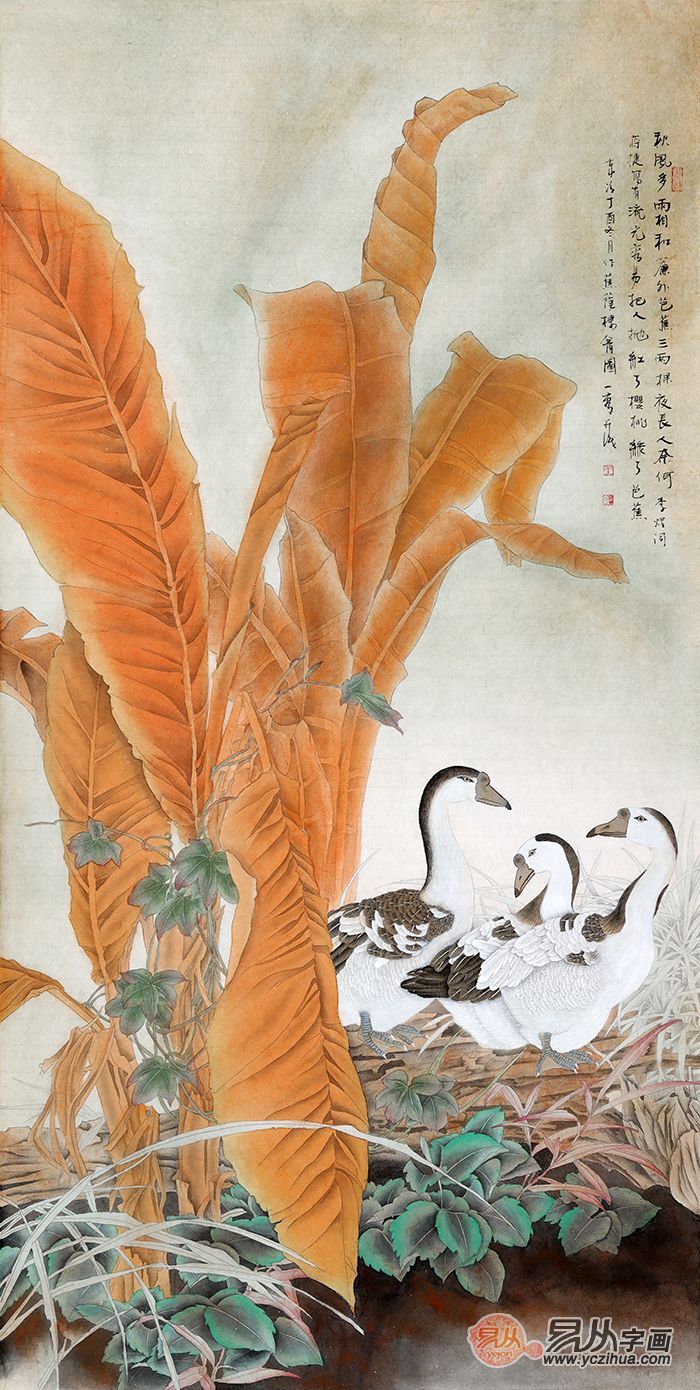 秋風多雨相和簾外芭蕉三兩棵夜長人奈何 李煜词
蔣捷寫有流光容易把人抛紅了櫻桃綠了芭蕉
丁酉冬月作蕉蔭圖
易从
易从字画
www.yczihua.com